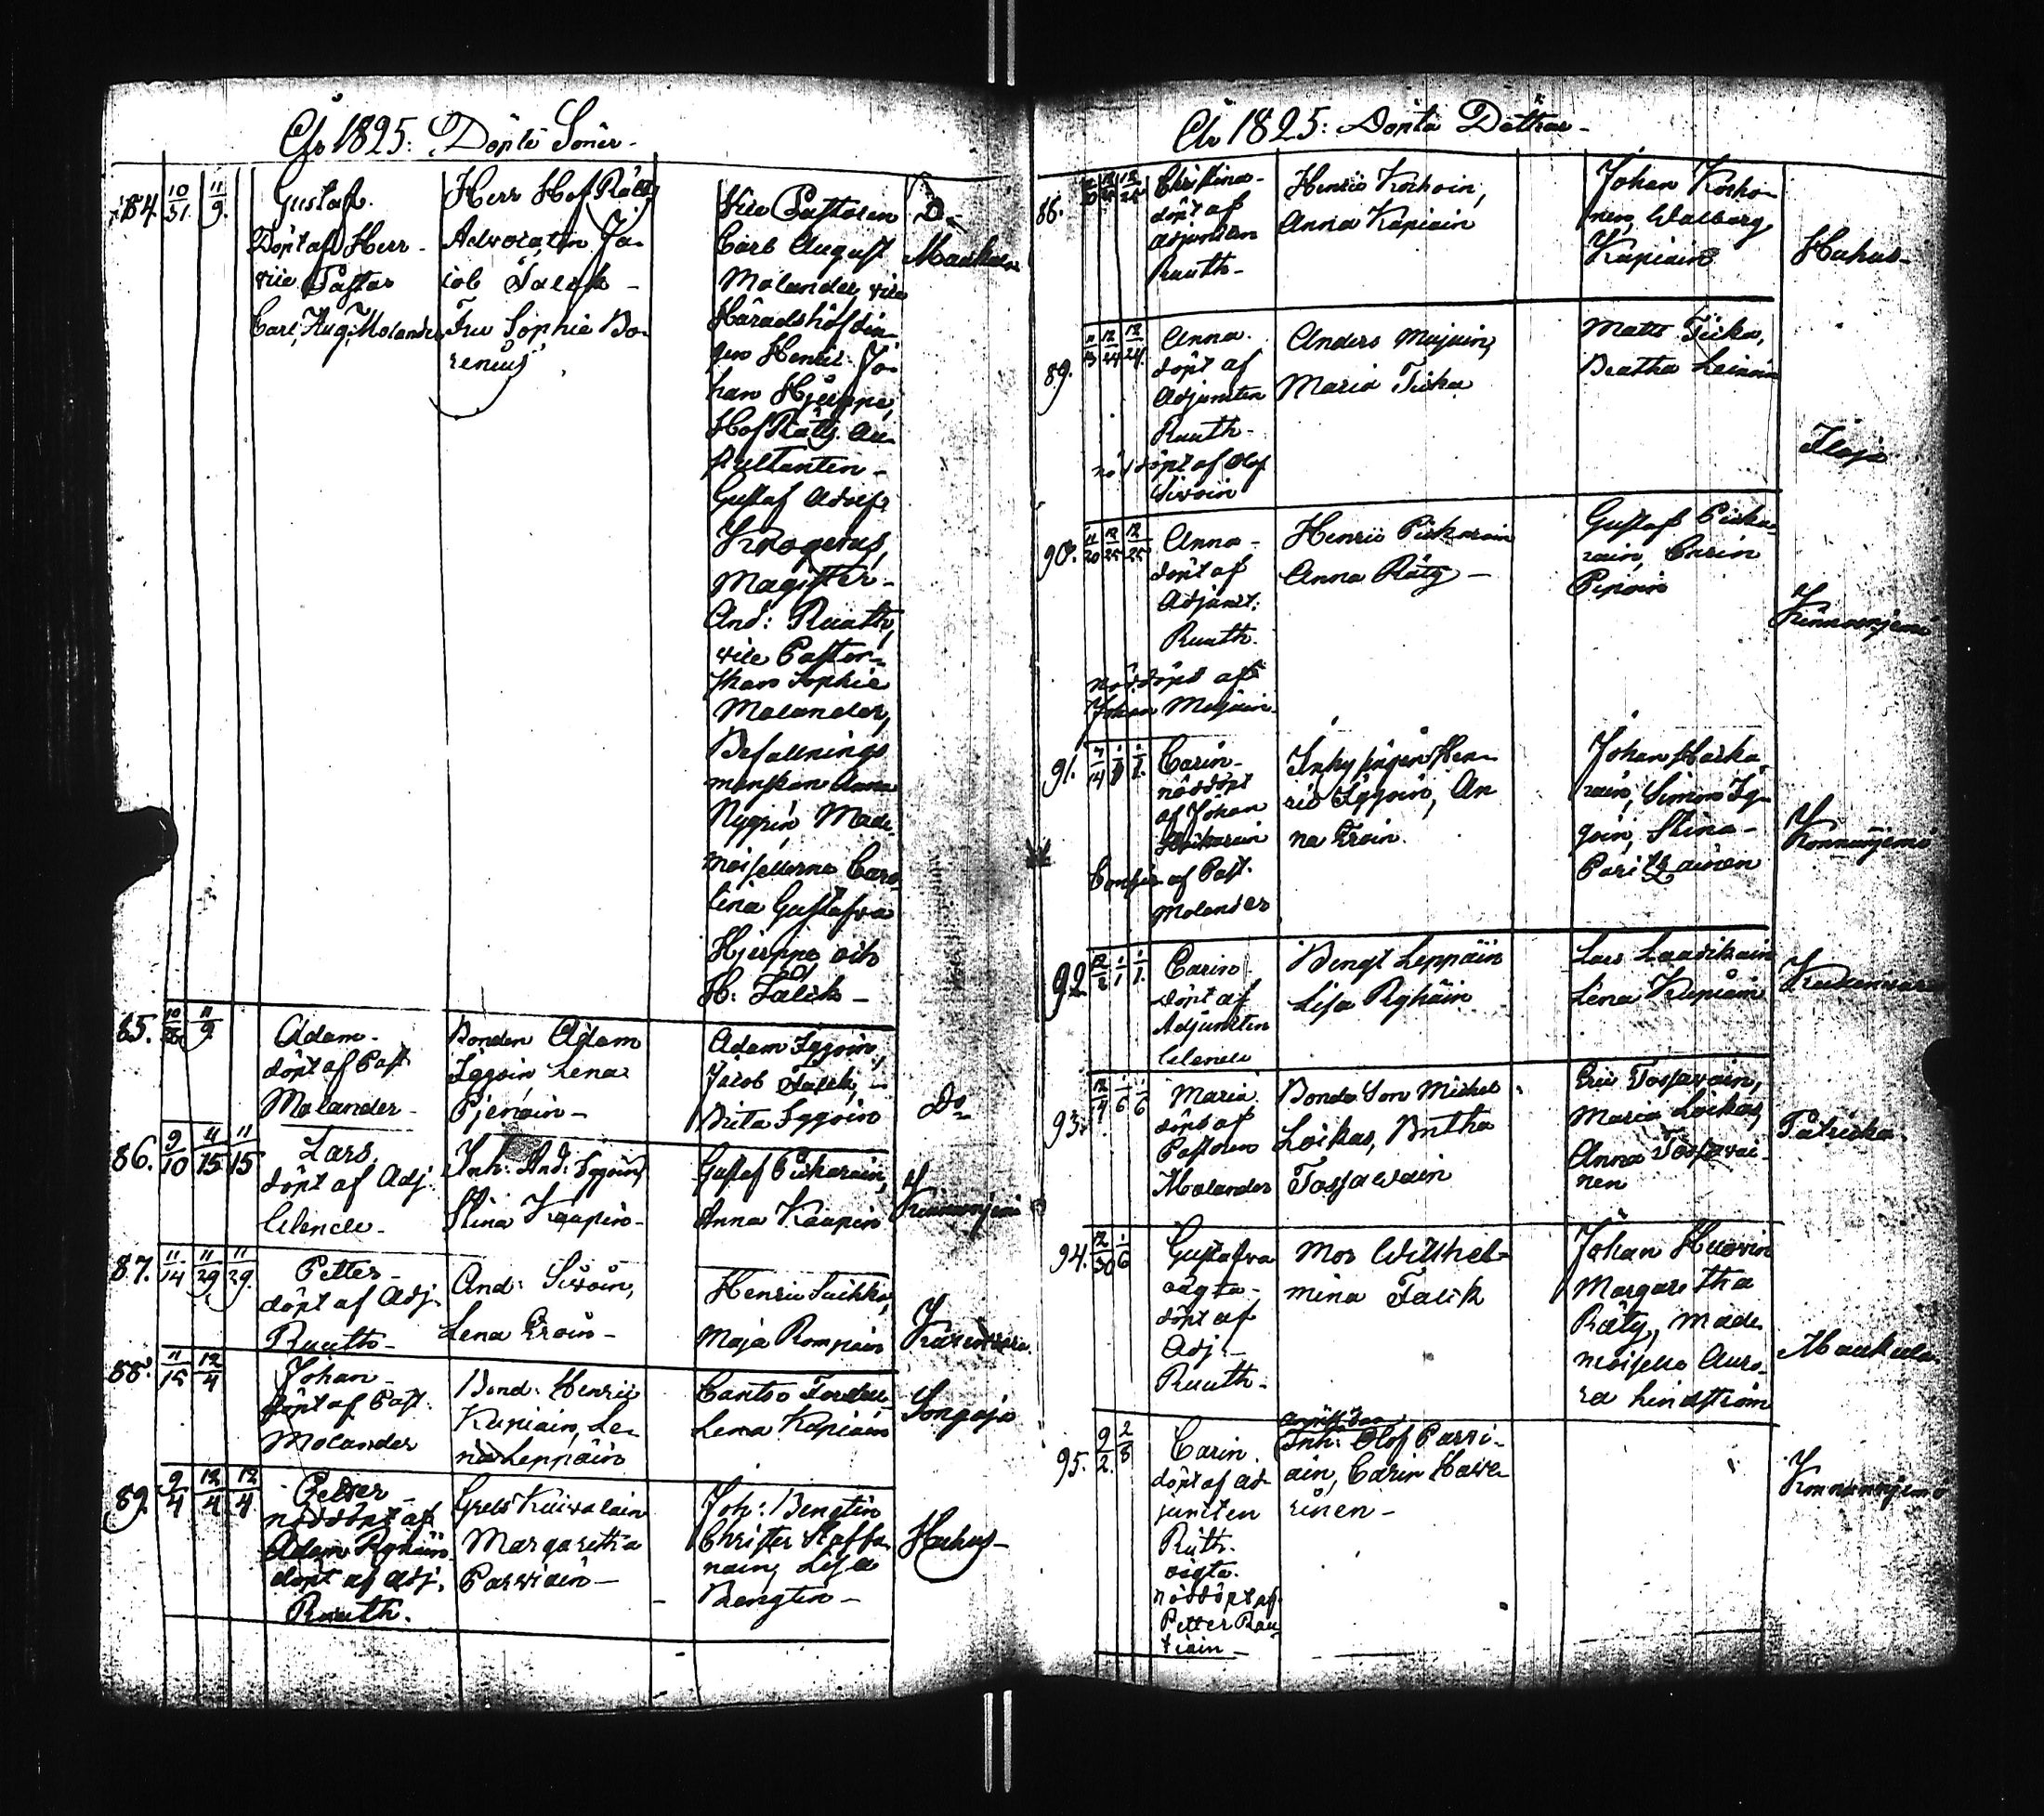 År 1825. Döpte Söner
84. 10/31 11/9
Gustaf.
Döpt af Herr
vice Pastor
Carl Aug: Molander
Herr Hof Rätts
Advocaten Ja-
cob Falck
Fru Sophie Bo-
renius
Vice Pastoren
Carl August
Molander vice
Häradshöfdin-
gen Henric Jo-
han Hjerppe,
Hof Rätts Au-
skultanten
Gustaf Adolf
Krogerus,
Magister
And: Ruuth,
vice Pastor-
skan Sophie
Molander,
Befallnings
manskan Anna
Nygrén, Made-
moisellerne Caro-
lina Gustafva
Hjerppe och
H: Falck
D:
Maukula
85. 11/9
Adam
döpt af Past
Molander
Bonden Adam
Iggoin Lena
Adam Iggoin,
Jacob Falck,
Brita Iggoin
Do
86. 9/10 11/15 11/15
Lars
döpt af Adj
Inh: And: Iggoin,
Stina Kaupin
Gustaf Pickarain,
Anna Kaupin
Kinnarniemi
87. 11/14 11/29 11/29.
Petter
döpt af Adj.
Ruuth
And: Sivoin,
Lena Eroin
Henric Suikka,
Maja Rompain
88. 11/15 12/4
Johan
döpt af Past.
Molander
Bond: Henric
Kupiain, Le-
na Leppäin
Cantso
Lena Kapiain
Songaja
89. 9/4 12/4 12/4
Petter
nöddöpt af
Adam Ryhäin
döpt af Adj.
Ruuth.
Grels Kuivalain
Margaretha
Parviain
Joh: Bengtin
Christer Staffa-
nain, Lisa
Bengtin
Huhus
År 1825: Döpta Döttrar
88.
Christina
döpt af
Adjuncten
Ruuth
Henric Korhoin,
Anna Kapiain
Johan Korho-
nen, Walborg
Kapiain
Huhus
89. 11/13 12/24 12/24.
Anna.
döpt af
Adjuncten
Ruuth
nöddöpt af Olof
Sivoin
Anders Mujuin,
Maria Ticka
Matts Ticka,
Beatha Leinoin
Ilaja
90. 11/20 12/25 12/25
Anna
döpt af
Adjunct:
Ruuth.
nöddöpt af
Johan Mujuin
Henric Pickarain
Anna Räty
Gustaf Picka-
rain, Carin
Piipoin
Kinnarniemi
91. 1/1.
Carin
nöddöpt
af Johan
Conf: af Past.
Molander
Inhysingen Hen-
ric Iggoin, An
na Eroin.
Johan Haska-
rain, Simon Ig-
goin, Stina
Paritzainen
Konnunniemi
92 12/2 1/1 1/1.
Carin
döpt af
Adjuncten
Bengt Leppäin
Lisa Ryhäin
Lars Laasikain
Lena Kupiain
93. 12/9 1/6 1/6
Maria
döpt af
Pastoren
Molander
Bonde Son Michel
Loikas, Britha
Tossavain
Eric Tossavain,
Maria Loikas,
Anna Tossavai-
nen
94. 12/30 1/6
Gustafva
oägta
döpt af
Adj.
Ruuth.
Mor Wilhel-
mina Falck
Johan Hurvin
Margaretha
Räty, Made-
moiselle Auro-
ra Lindström
Maukula
95. 9/2. 2/8
Carin
döpt af Ad-
juncten
Ruth.
oägta.
nöddöpt af
Petter Rau-
tiain
Inh: Olof Parvi-
ain, Carin Have-
rinen
Konnunniemi